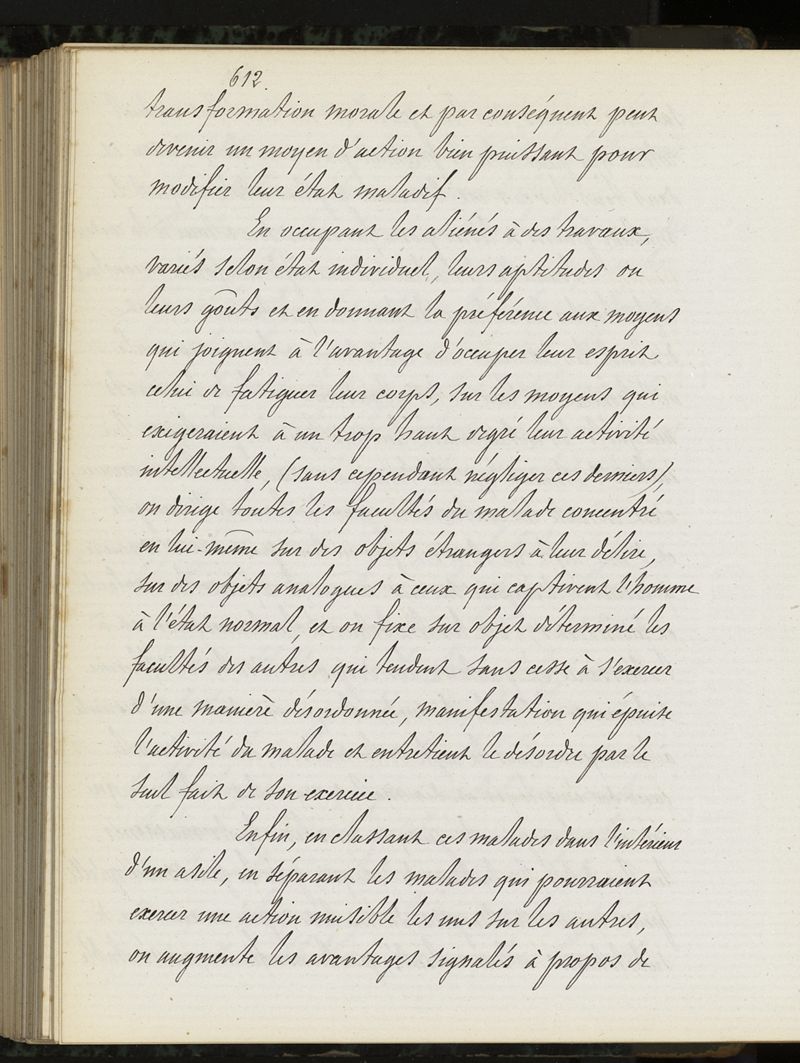 612.
transformation morale et par conséquent peut
devenir un moyen d'action bien puissant pour
modifier leur état maladif.
En occupant les aliénés à des travaux,
variés selon état individuel, leurs aptitudes ou
leurs goûts et en donnant la préférence aux moyens
qui joignent à l'avantage d'occuper leur esprit
celui de fatiguer leur corps, sur les moyens qui
exigeraient à un trop haut degré leur activité
intellectuelle, (sans cependant négliger ces derniers),
on dirige toutes les facultés du malade concentré
en lui-même sur des objets étrangers à leur délire,
sur des objets analogues à ceux qui captivent l'homme
à l'état normal, et on fixe sur objet déterminé les
facultés des autres qui tendent sans cesse à s'exercer
d'une manière désordonnée, manifestation qui épuise
l'activité du malade et entretient le désordre par le
seul fait de son exercice.
Enfin, en classant ces malades dans l'intérieur
d'un asile, en séparant les malades qui pourraient
exercer une action nuisible les uns sur les autres,
on augmente les avantages signalés à propos de